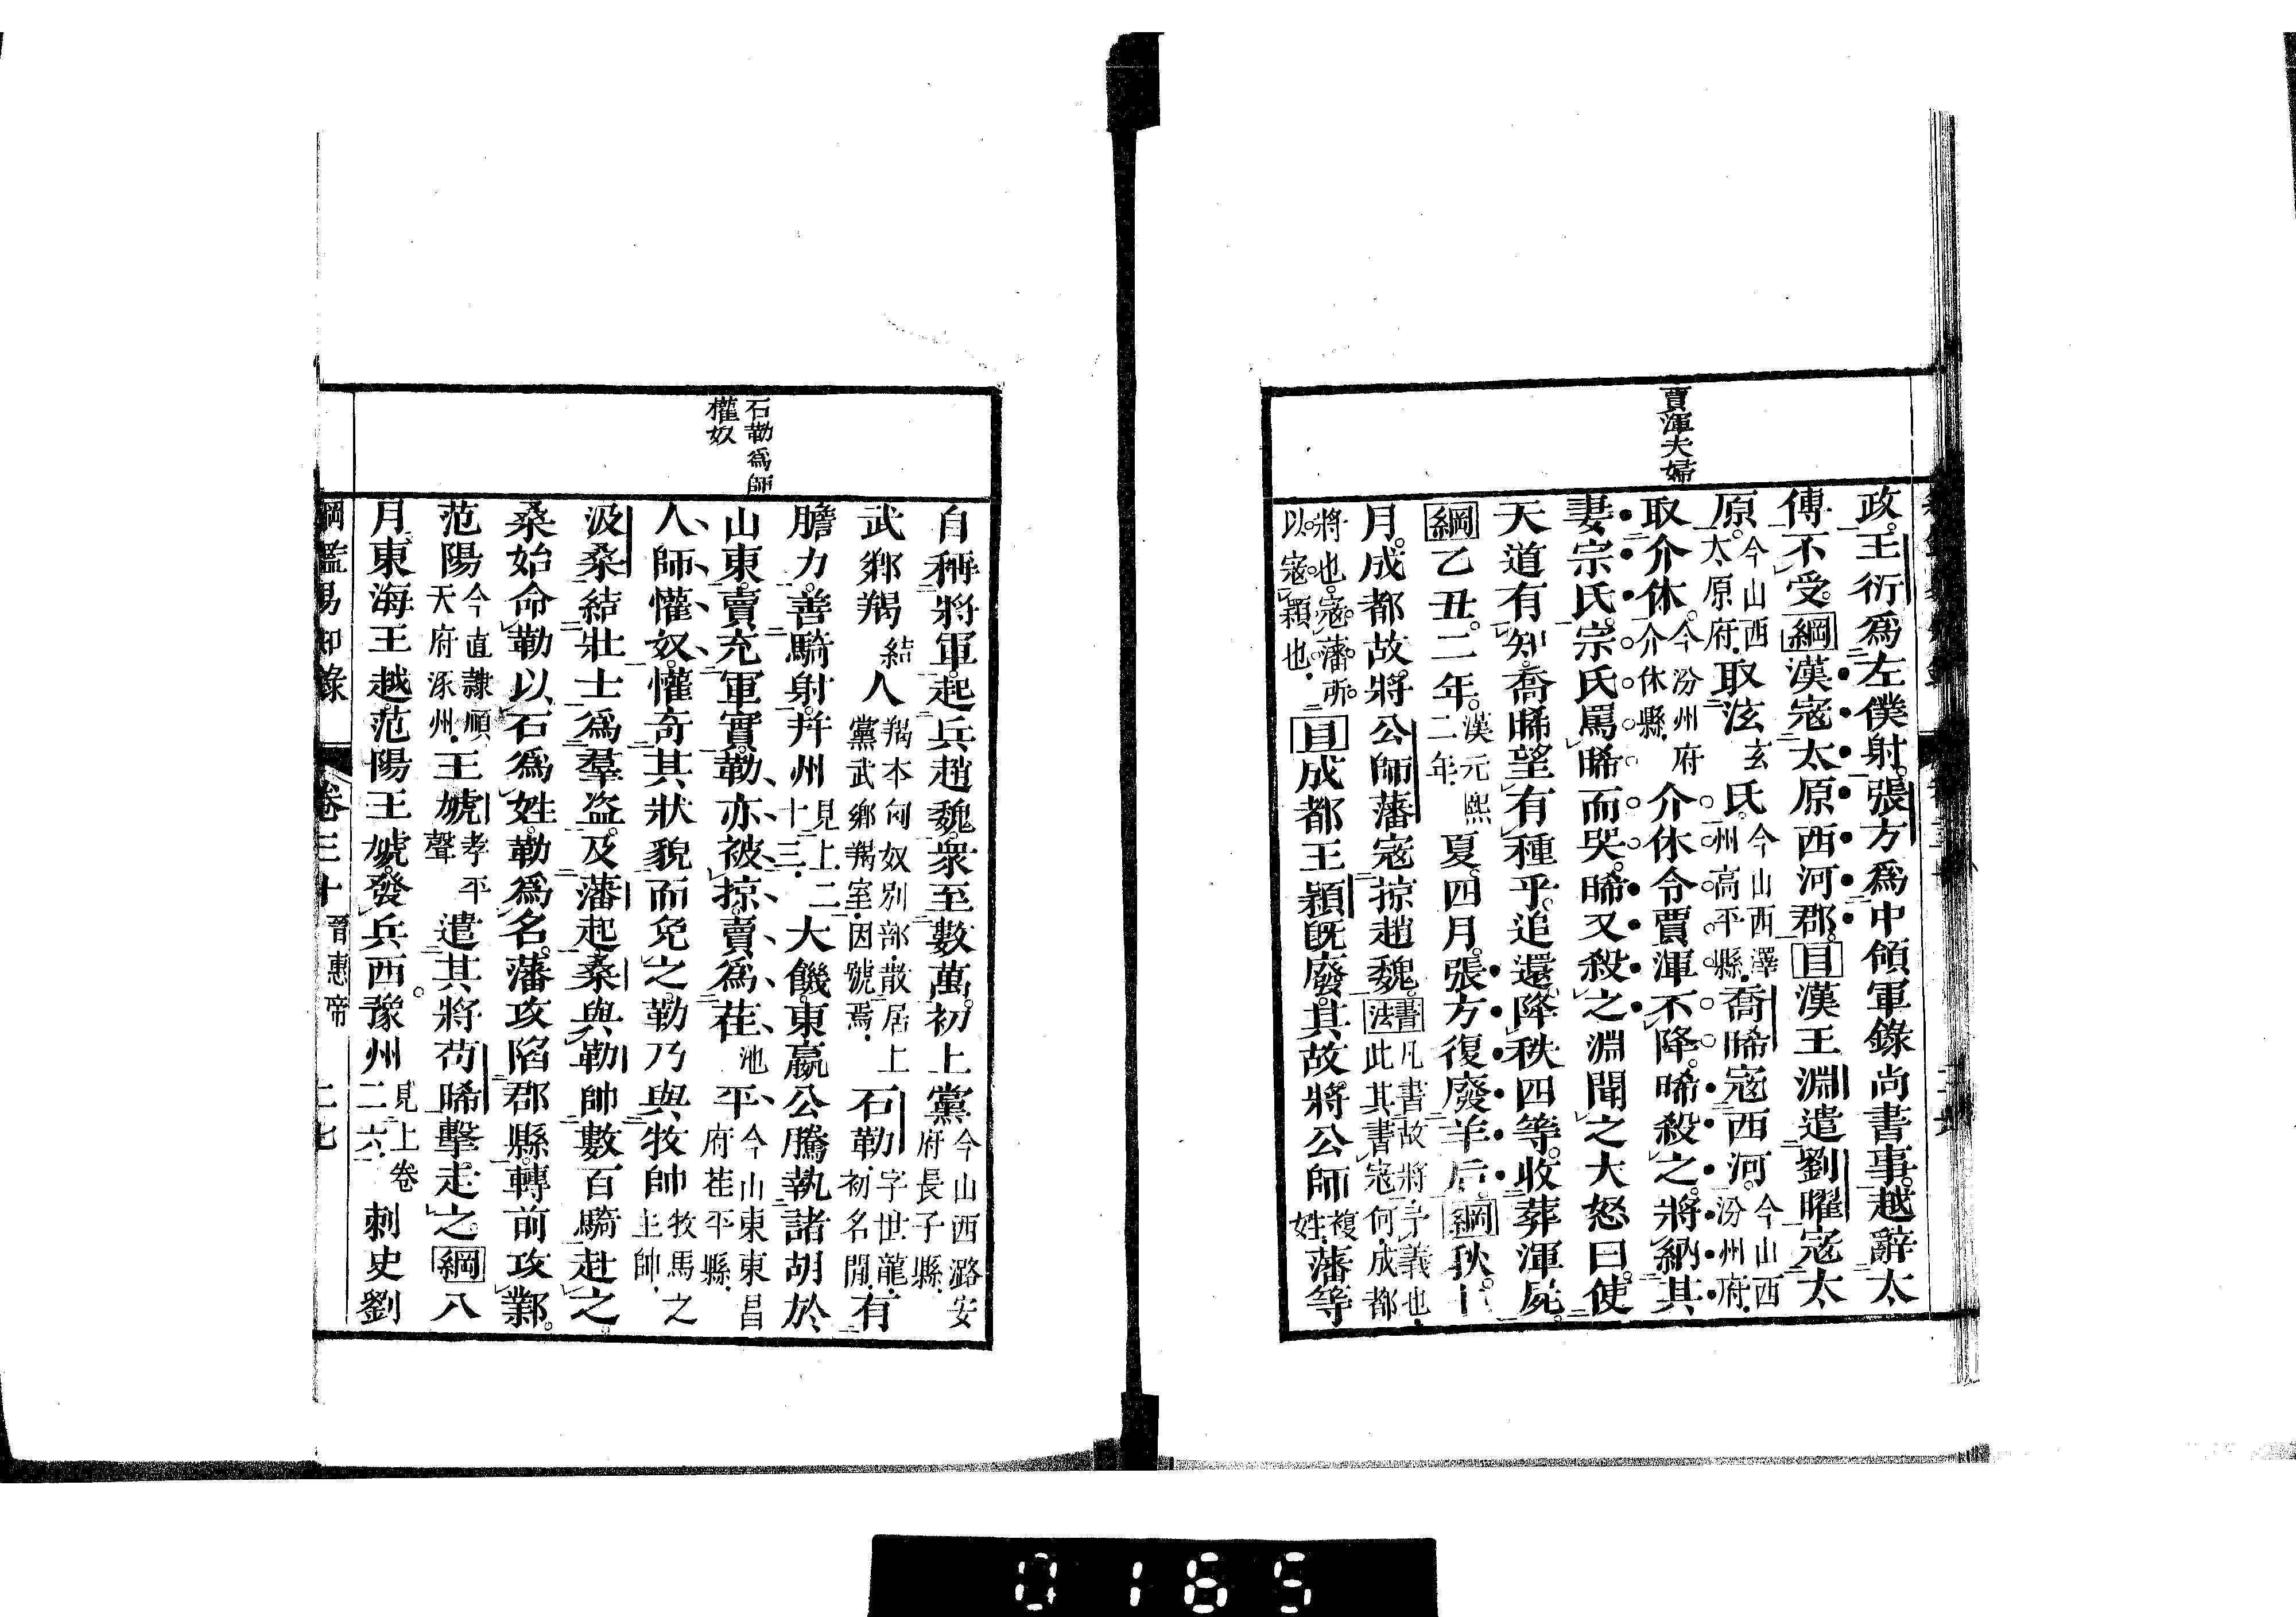 賈渾夫婦
政。王衍爲左僕射。張方爲中領軍錄尚書事。越辭太
傅不受。綱漢寇太原西河郡。目漢王淵遣劉曜寇太
原。今山西太原府。取泫玄氏。今山西澤州高平縣。喬晞寇西河。今山西汾州府。
取介休。今汾州府介休縣。介休令賈渾不降。晞殺之。將納其
妻宗氏。宗氏罵晞而哭。晞又殺之。淵聞之大怒曰。使
天道有知。喬晞望有種乎。追還降秩四等。收葬渾屍。
綱乙丑。二年。漢元熙二年。夏。四月。張方復廢羊后。綱秋。七
月。成都故將公師藩寇掠趙魏。書法凡書故將予義也。此其書寇何。成都
將也。寇藩所以寇穎也。目成都王穎旣廢。其故將公師複姓。藩等
石勒爲師
懽奴
自稱將軍。起兵趙魏。衆至數萬。初上黨今山西潞安府長子縣。
武鄉羯結人羯本匈奴別部。散居上黨武鄉羯室。因號焉。石勒。字世龍。初名㔨。有
膽力。善騎射。并州見上二十三。大饑。東嬴公騰執諸胡於
山東。賣充軍實。勒亦被掠。賣爲茌池平今山東東昌府茌平縣。
人師懽奴。懽奇其狀貌而免之。勒乃與牧帥牧馬之主帥。
汲桑結壯士爲羣盗。及藩起。桑與勒帥數百騎赴之。
桑始命勒以石爲姓。勒爲名。藩攻陷郡縣。轉前攻鄴。
范陽今直隷順天府涿州。王虓孝平聲遣其將苟晞擊走之。綱八
月。東海王越。范陽王虓。發兵西。豫州見上卷二六。刺史劉
綱鑑易知錄 卷三十 晉惠帝 二七